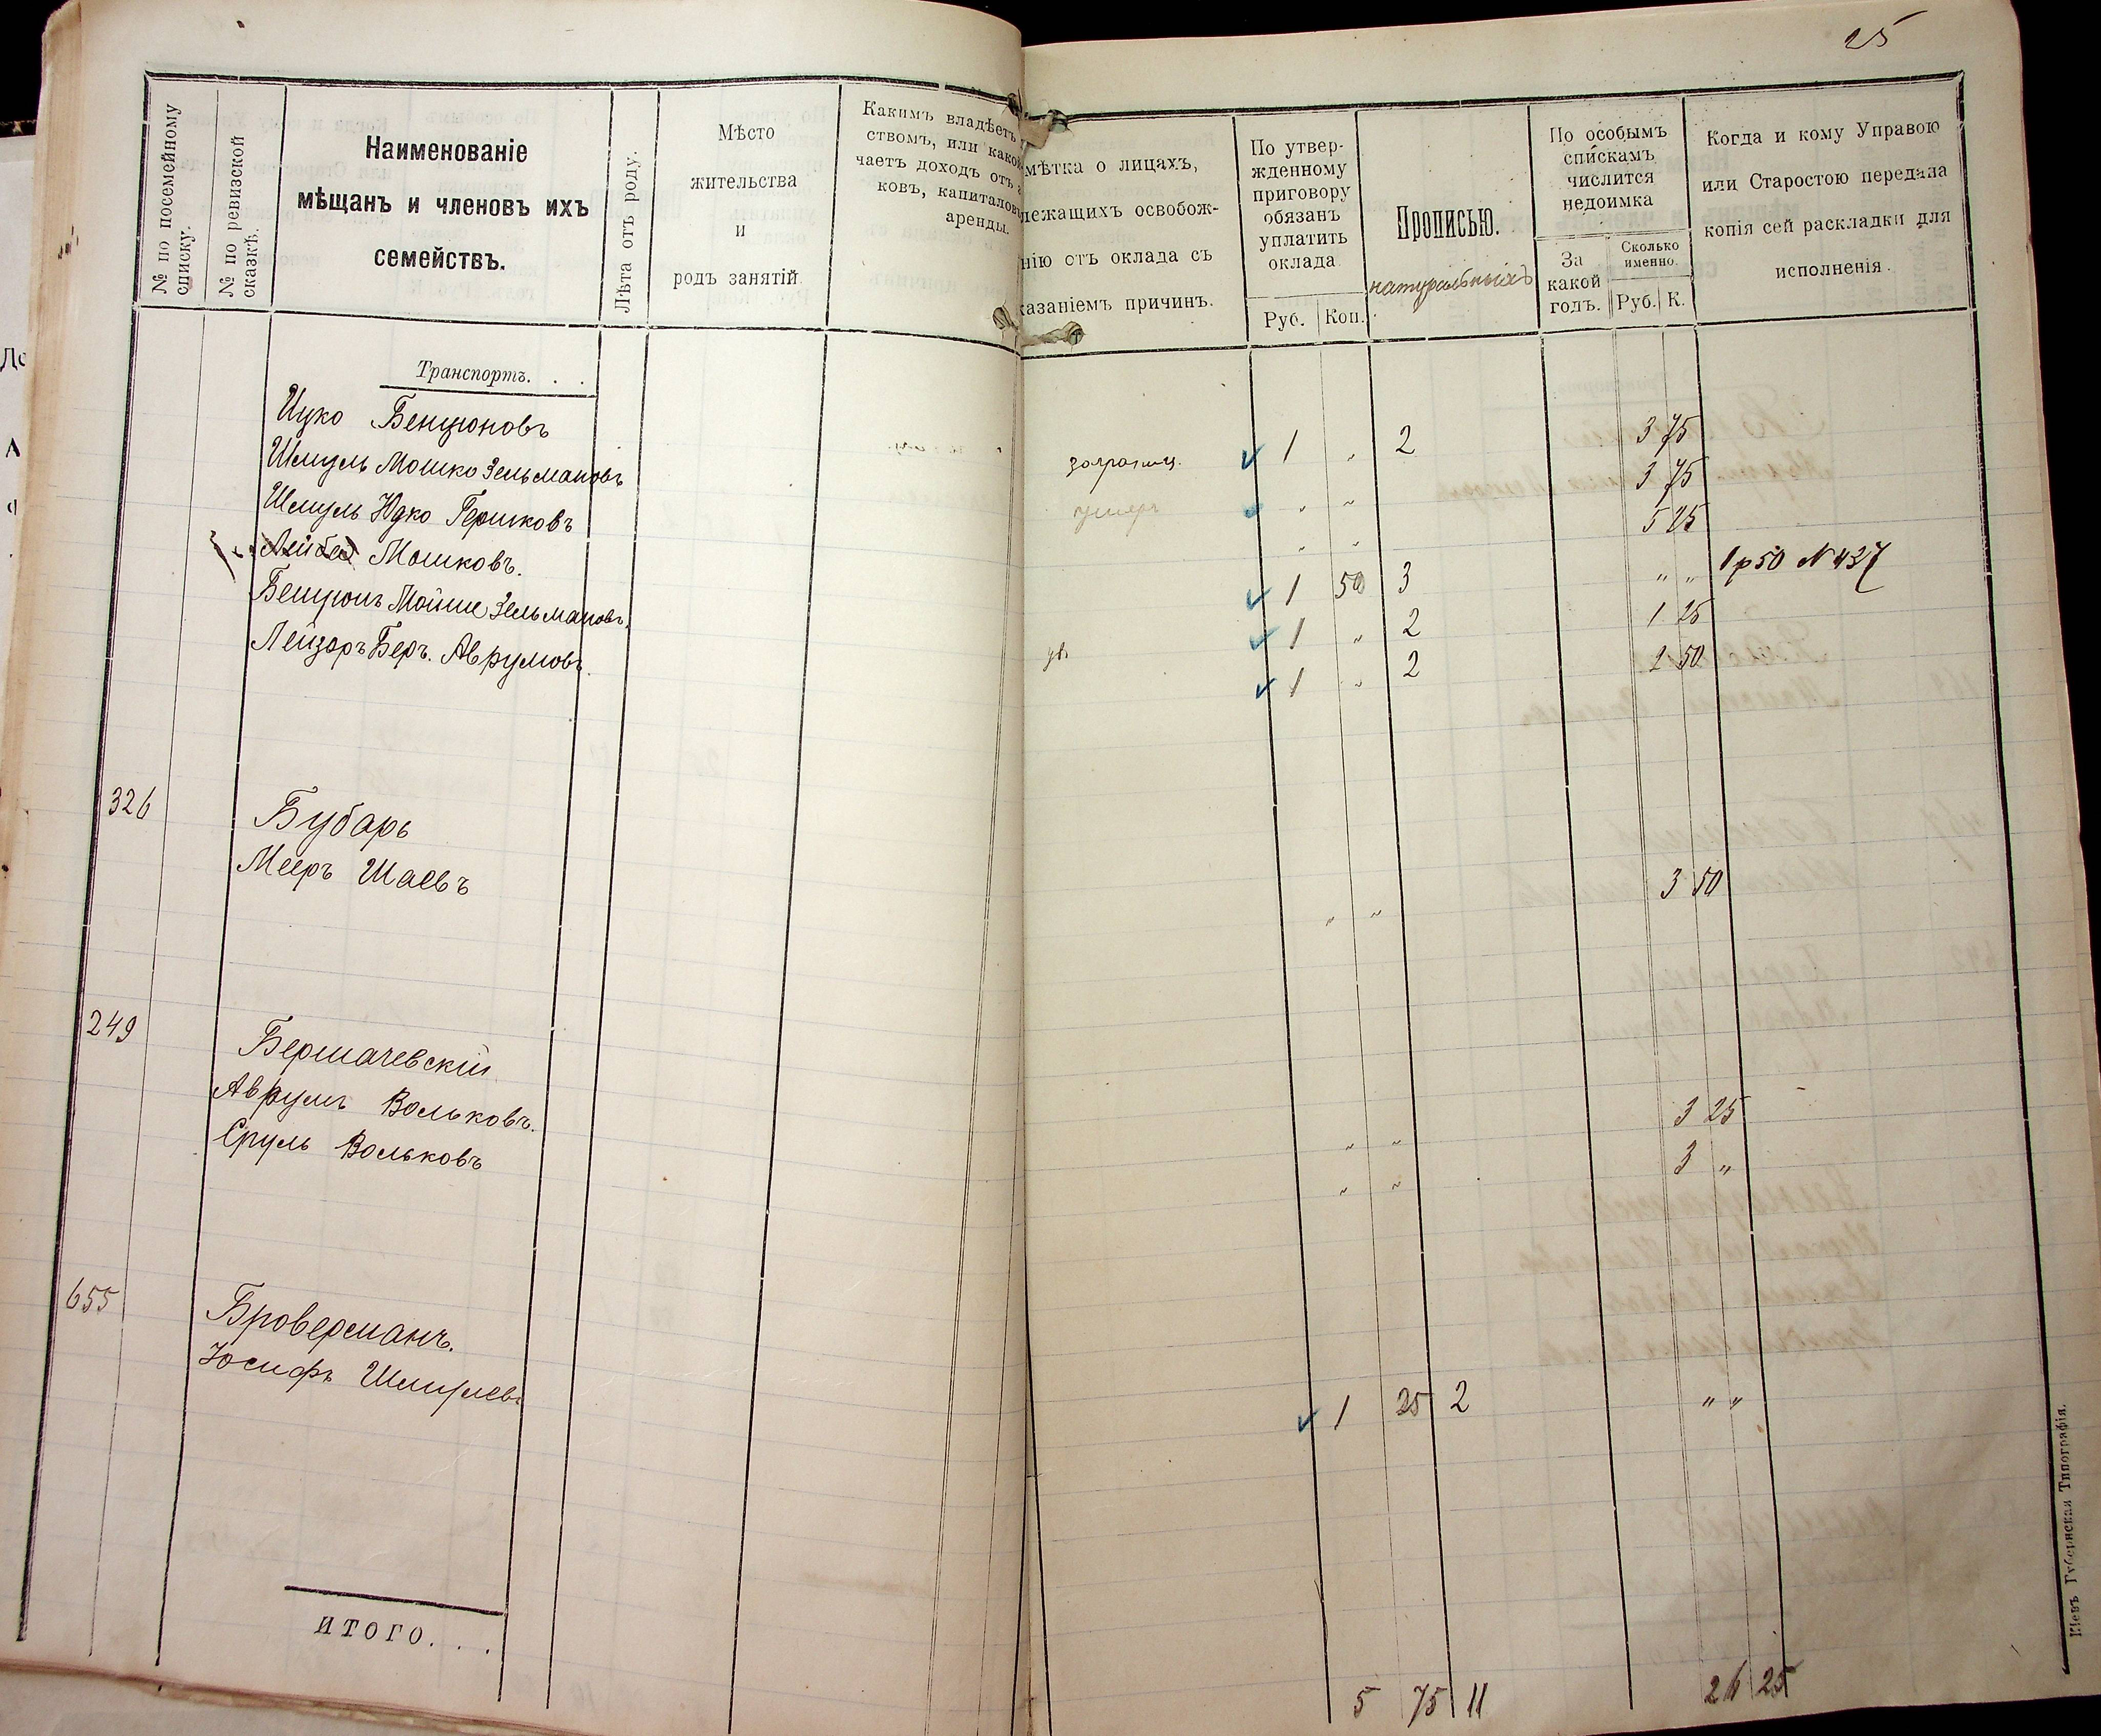 25
№ по посемейному списку.
№ по ревизской сказкѣ.
Наименованіе
мѣщанъ и членовъ ихъ
семействъ.
Лѣта отъ роду.
Мѣсто
жительства
и
родъ занятій.
Какимъ владѣетъ
ствомъ, или како
чаетъ доходъ отъ
ковъ, капиталовъ
аренды.
мѣтка о лицахъ,
лежащихъ освобож-
нію отъ оклада съ
казаніемъ причинъ.
По утвер-
жденному
приговору
обязанъ
уплатить
оклада
Руб. Коп.
Прописью.
натуральныхъ
По особымъ
спискамъ
числится
недоимка
За
какой
годъ.
Сколько
именно.
Руб. К.
Когда и кому Управою
или Старостою передана
копія сей раскладки для
исполненія.
Транспортъ. . .
Ицко Бенціоновъ 1 " 2 3 75
Шмуль Мошко Зельмановъ умеръ " " 3 75
Шмуль Юдко Гершковъ " " 5 25
Лейба Мошковъ. 1 50 3 " " 1 р 50 N 437
Бенціонъ Мойше Зельмановъ. 1 " 2 1 25
Лейзоръ Беръ. Аврумовъ. 1 " 2 2 50
326 Бубарь
Мееръ Шаевъ " " 3 50
249 Бершачевскій
Аврумъ Вольковъ. " " 3 25
Сруль Вольковъ " " 3 "
655 Броверманъ.
Іосифъ Шмулевъ 1 25 2 " "
ИТОГО. . . 5 75 11 26 25
Кіевъ Губернская Типографія.